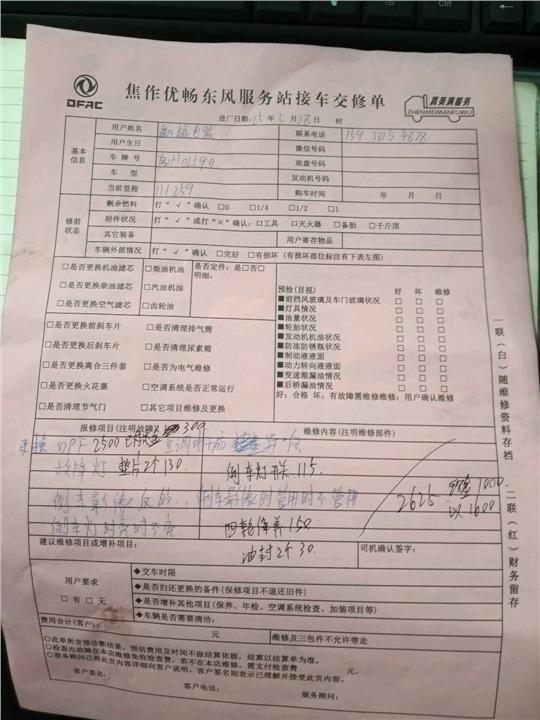 DFAC
焦作优畅东风服务站接车交修单
真美满服务
ZHENMEIMANFUWU
进厂日期：25年5月28日 时
基本信息
用户姓名 联系电话
用户生日 微信号码
车牌号 底盘号码
车型 发动机号码
当前里程 111259 购车时间 年 月 日
修前状态
剩余燃料 打“√”确认 □0 □1/4 □1/2 □1
附件状况 打“√”或打“×”确认：□工具 □灭火器 □备胎 □千斤顶
其它装备 用户寄存物品
车辆外部情况 打“√”确认 □完好 □有损坏（有损坏部位标注有下表左图）
□是否更换机油滤芯 □柴油机油 是否定件：是□否□
明细：
□是否更换柴油滤芯 □汽油机油
□是否更换空气滤芯 □齿轮油
预检(目视) 好 坏 维修
■前挡风玻璃及车门玻璃状况 □ □ □
■灯具情况 □ □ □
■油量状况 □ □ □
■轮胎状况 □ □ □
■发动机机油状况 □ □ □
■防冻防锈瓶状况 □ □ □
■制动液液面 □ □ □
■动力转向液液面 □ □ □
■变速箱漏油情况 □ □ □
■后桥漏油情况 □ □ □
好：合格 坏：有故障需维修维修：用户确认维修
□是否更换前刹车片 □是否清理排气筒
□是否更换后刹车片 □是否清理尿素箱
□是否更换离合三件套 □是否为电气维修
□是否更换火花塞 □空调系统是否正常运行
□是否清理节气门 □其它项目维修及更换
报修项目(注明故障) 300 维修内容(注明维修部件)
更换DPF 2500
故障灯 垫片2个130 倒车灯开关115
倒车影像反的.. 倒车影像时管用时不管用
2625
1000
以1600
倒车灯时亮时不亮 四轮保养150
油封2个30
建议维修项目或增补项目： 司机确认签字：
用户要求
□有□无
◆交车时限
◆是否归还更换的备件(保修项目不退还旧件)
◆是否增补其他项目(保养、年检、空调系统检查、加装项目等)
◆车辆是否需要清洁：
费用合计(客户)： 元 维修及三包件不允许带走
○此单所含预诊断结果，预估费用及时间不做结算依据，结算以结算单为准。
○检查出故障在本店维修免收检查费，若不在本店维修，需支付检查费 元。
○服务顾问已将此页内容详细向客户说明，客户签名则表示已理解并接受此页内容。
客户签名：
客户电话： 服务顾问：
一联(白)随维修资料存档
二联(红)财务留存